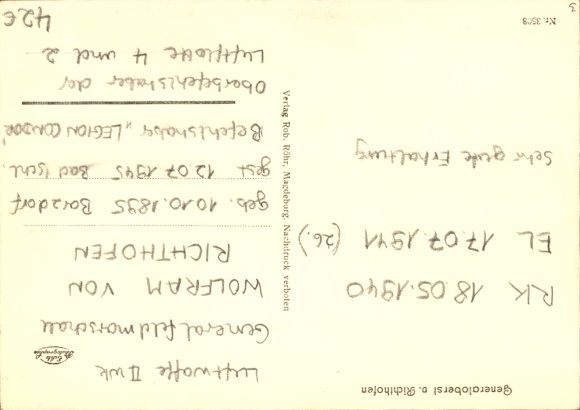 Generaloberst v. Richthofen
RK 18.05.1940
EL 17.07.1941 (26.)
Sehr gute Erhaltung
Nr. 3508
Verlag Rob. Röhr, Magdeburg. Nachdruck verboten
Luftwaffe II WK
Echte Photographie
Generalfeldmarschall
WOLFRAM VON
RICHTHOFEN
geb. 10.10.1895 Barzdorf
gest 12.07.1945 Bad Ischl.
Befehlshaber "LEGION CONDOR"
Oberbefehlshaber der
Luftflotte 4 und 2
42€
3